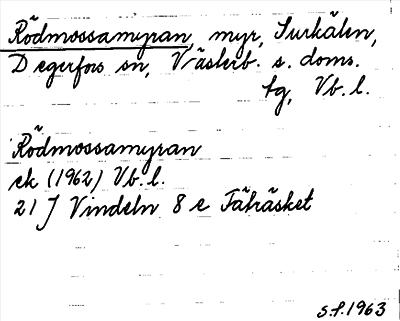 Rödmossamyran, myr, Surkälen,
Degerfors sn, Västerb. s. doms.
tg, Vb. l.
Rödmossamyran
ek (1962) Vb. l.
21 J Vindeln 8 e Fäbräsket
S.f. 1963